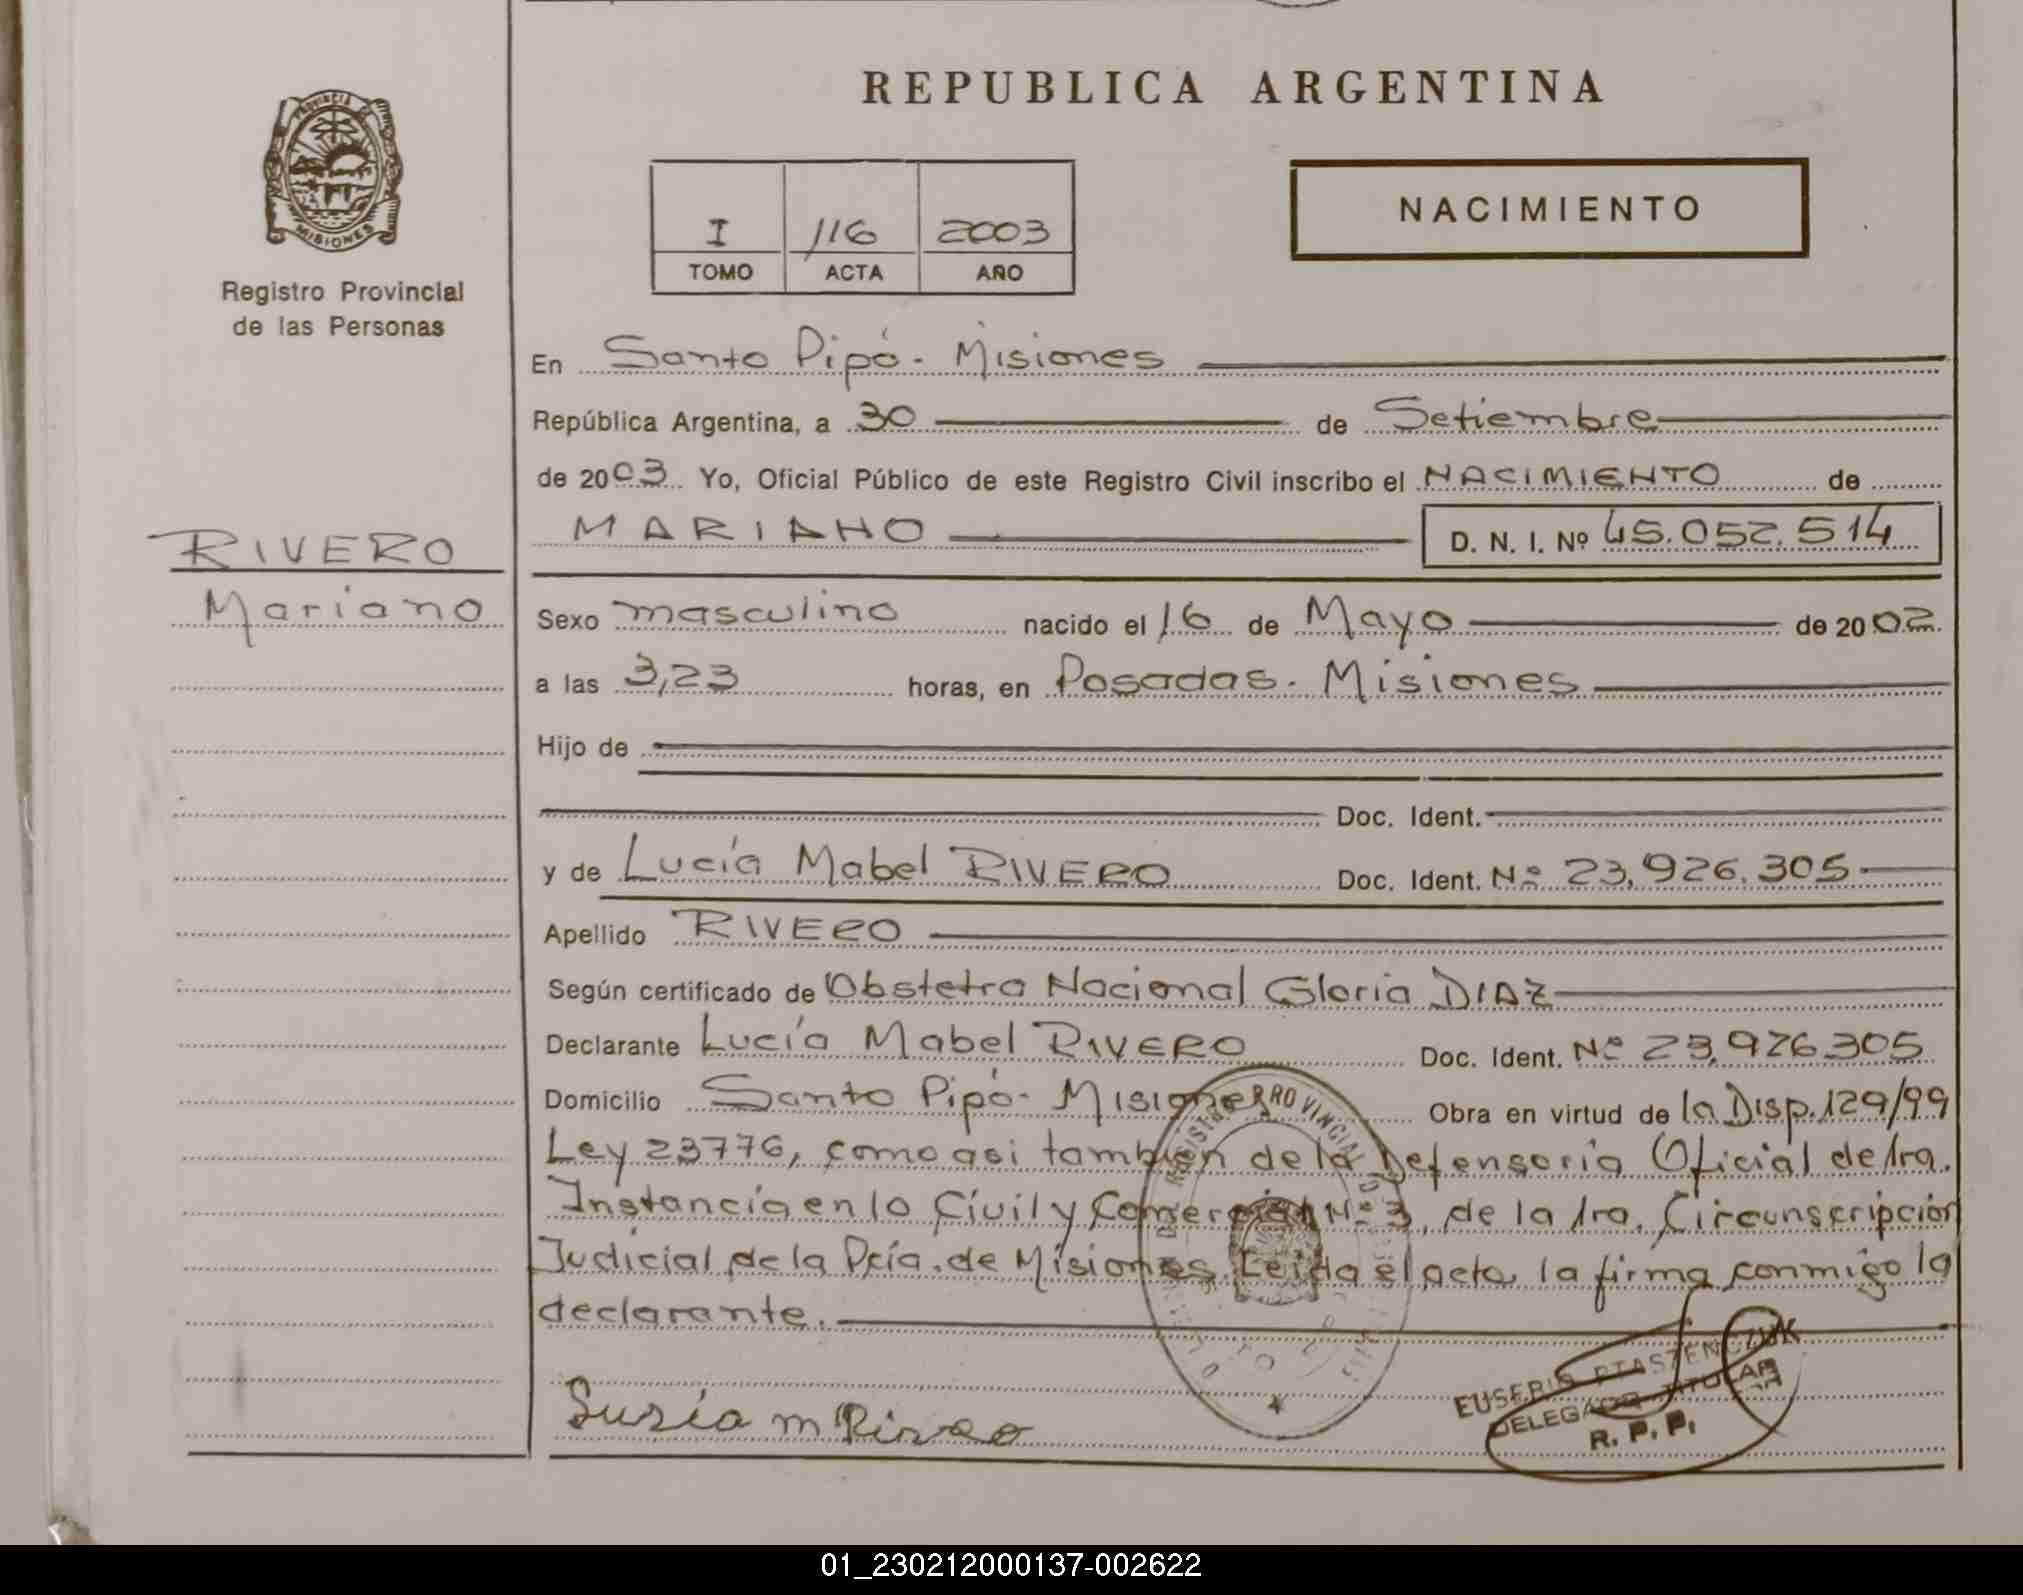 REPUBLICA ARGENTINA
PROVINCIA DE
MISIONES
Registro Provincial
de las Personas
I 116 2003
TOMO ACTA AÑO
NACIMIENTO
RIVERO
Mariano
En Santo Pipó - Misiones
República Argentina, a 30 de Setiembre
de 2003 Yo, Oficial Público de este Registro Civil inscribo el NACIMIENTO de
MARIANO D. N. I. Nº 45.052.514
Sexo masculino nacido el 16 de Mayo de 2002
a las 3,23 horas, en Posadas. Misiones
Hijo de
Doc. Ident.
y de Lucía Mabel RIVERO Doc. Ident. Nº 23.926.305
Apellido RIVERO
Según certificado de Obstetra Nacional Gloria DIAZ
Declarante Lucía Mabel RIVERO Doc. Ident. Nº 23.926.305
Domicilio Santo Pipó - Misiones Obra en virtud de la Disp. 129/99
Ley 23776, como asi también de la Defensoría Oficial de 1ra.
Instancia en lo Civil y Comercial Nº 3, de la 1ra. Circunscripción
Judicial de la Pcia. de Misiones. Leída el acta, la firma conmigo la
declarante.
EUSEBIO PTASZENCZUK
DELEGADO TITULAR
R. P. P.
01_230212000137-002622